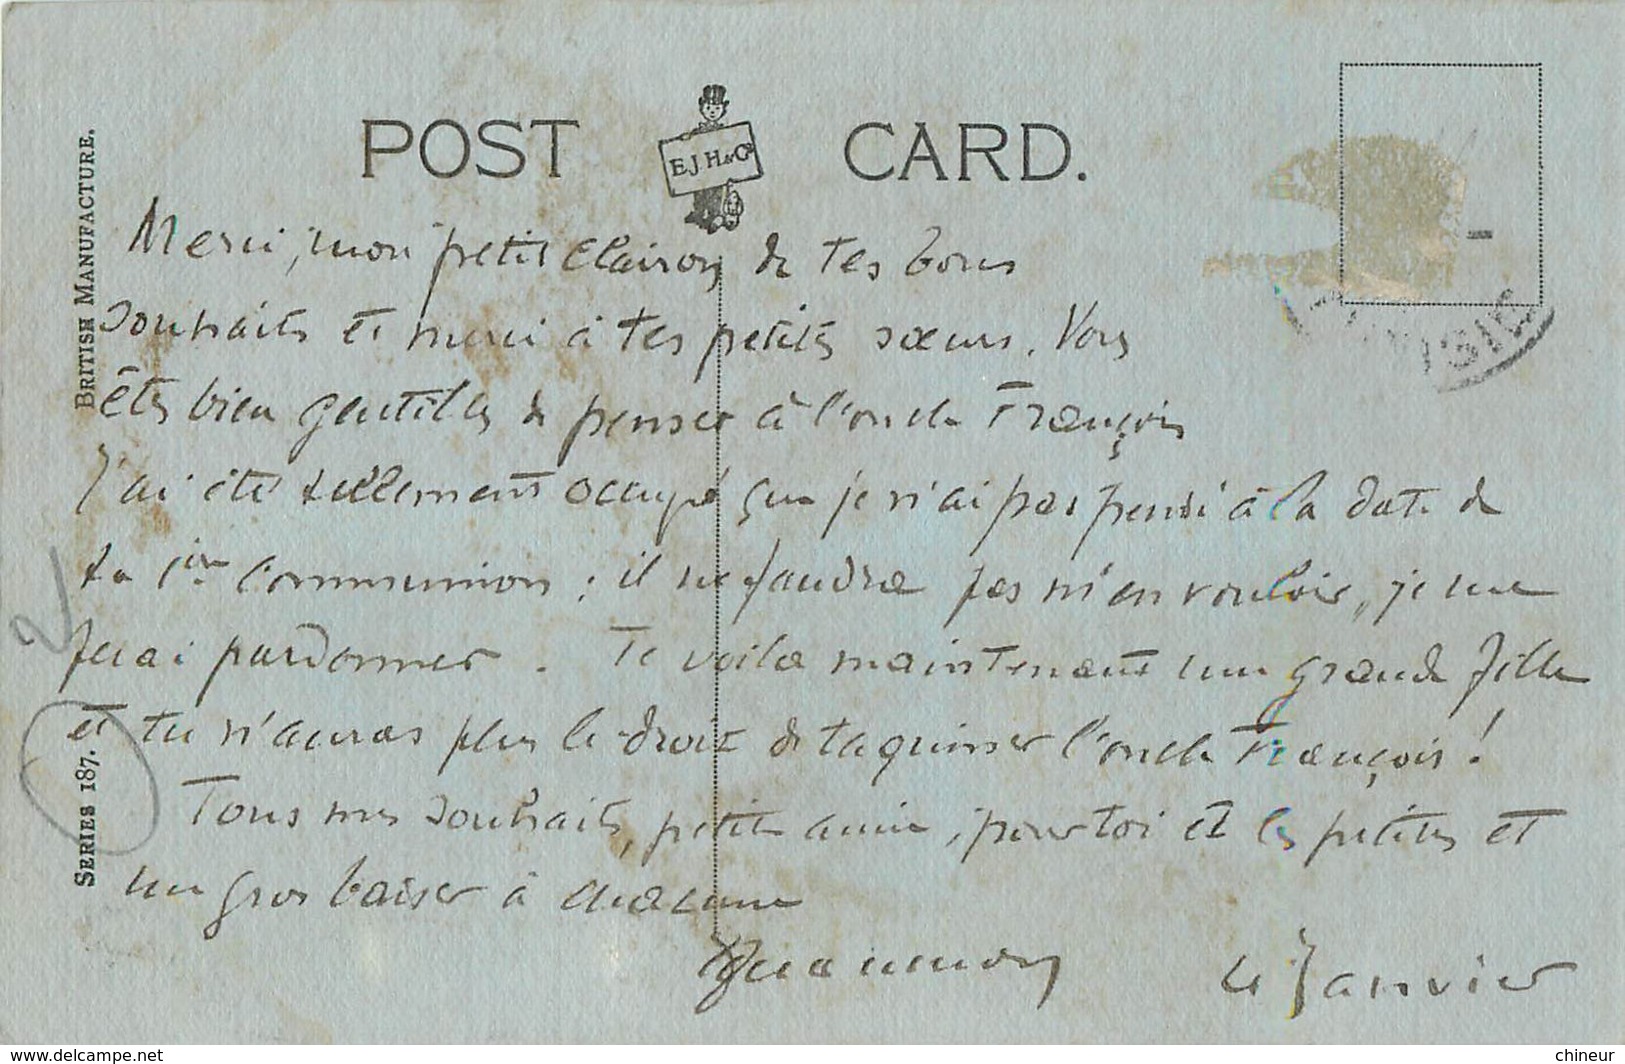 POST CARD.
E.J.H.&Co
BRITISH MANUFACTURE.
SERIES 187.
2
Merci, mon petit Clairon de tes bons
souhaits et merci à tes petites sœurs. Vous
êtes bien gentilles de penser à l'oncle François
J'ai été tellement occupé que je n'ai pas pensé à la date de
ta 1ière Communion : il ne faudra pas m'en vouloir, je me
ferai pardonner. Te voila maintenant une grande fille
et tu n'auras plus le droit de taquiner l'oncle François !
Tous mes souhaits, petite amie, pour toi et les petites et
un gros baiser à chacune
4 Janvier
www.delcampe.net
chineur